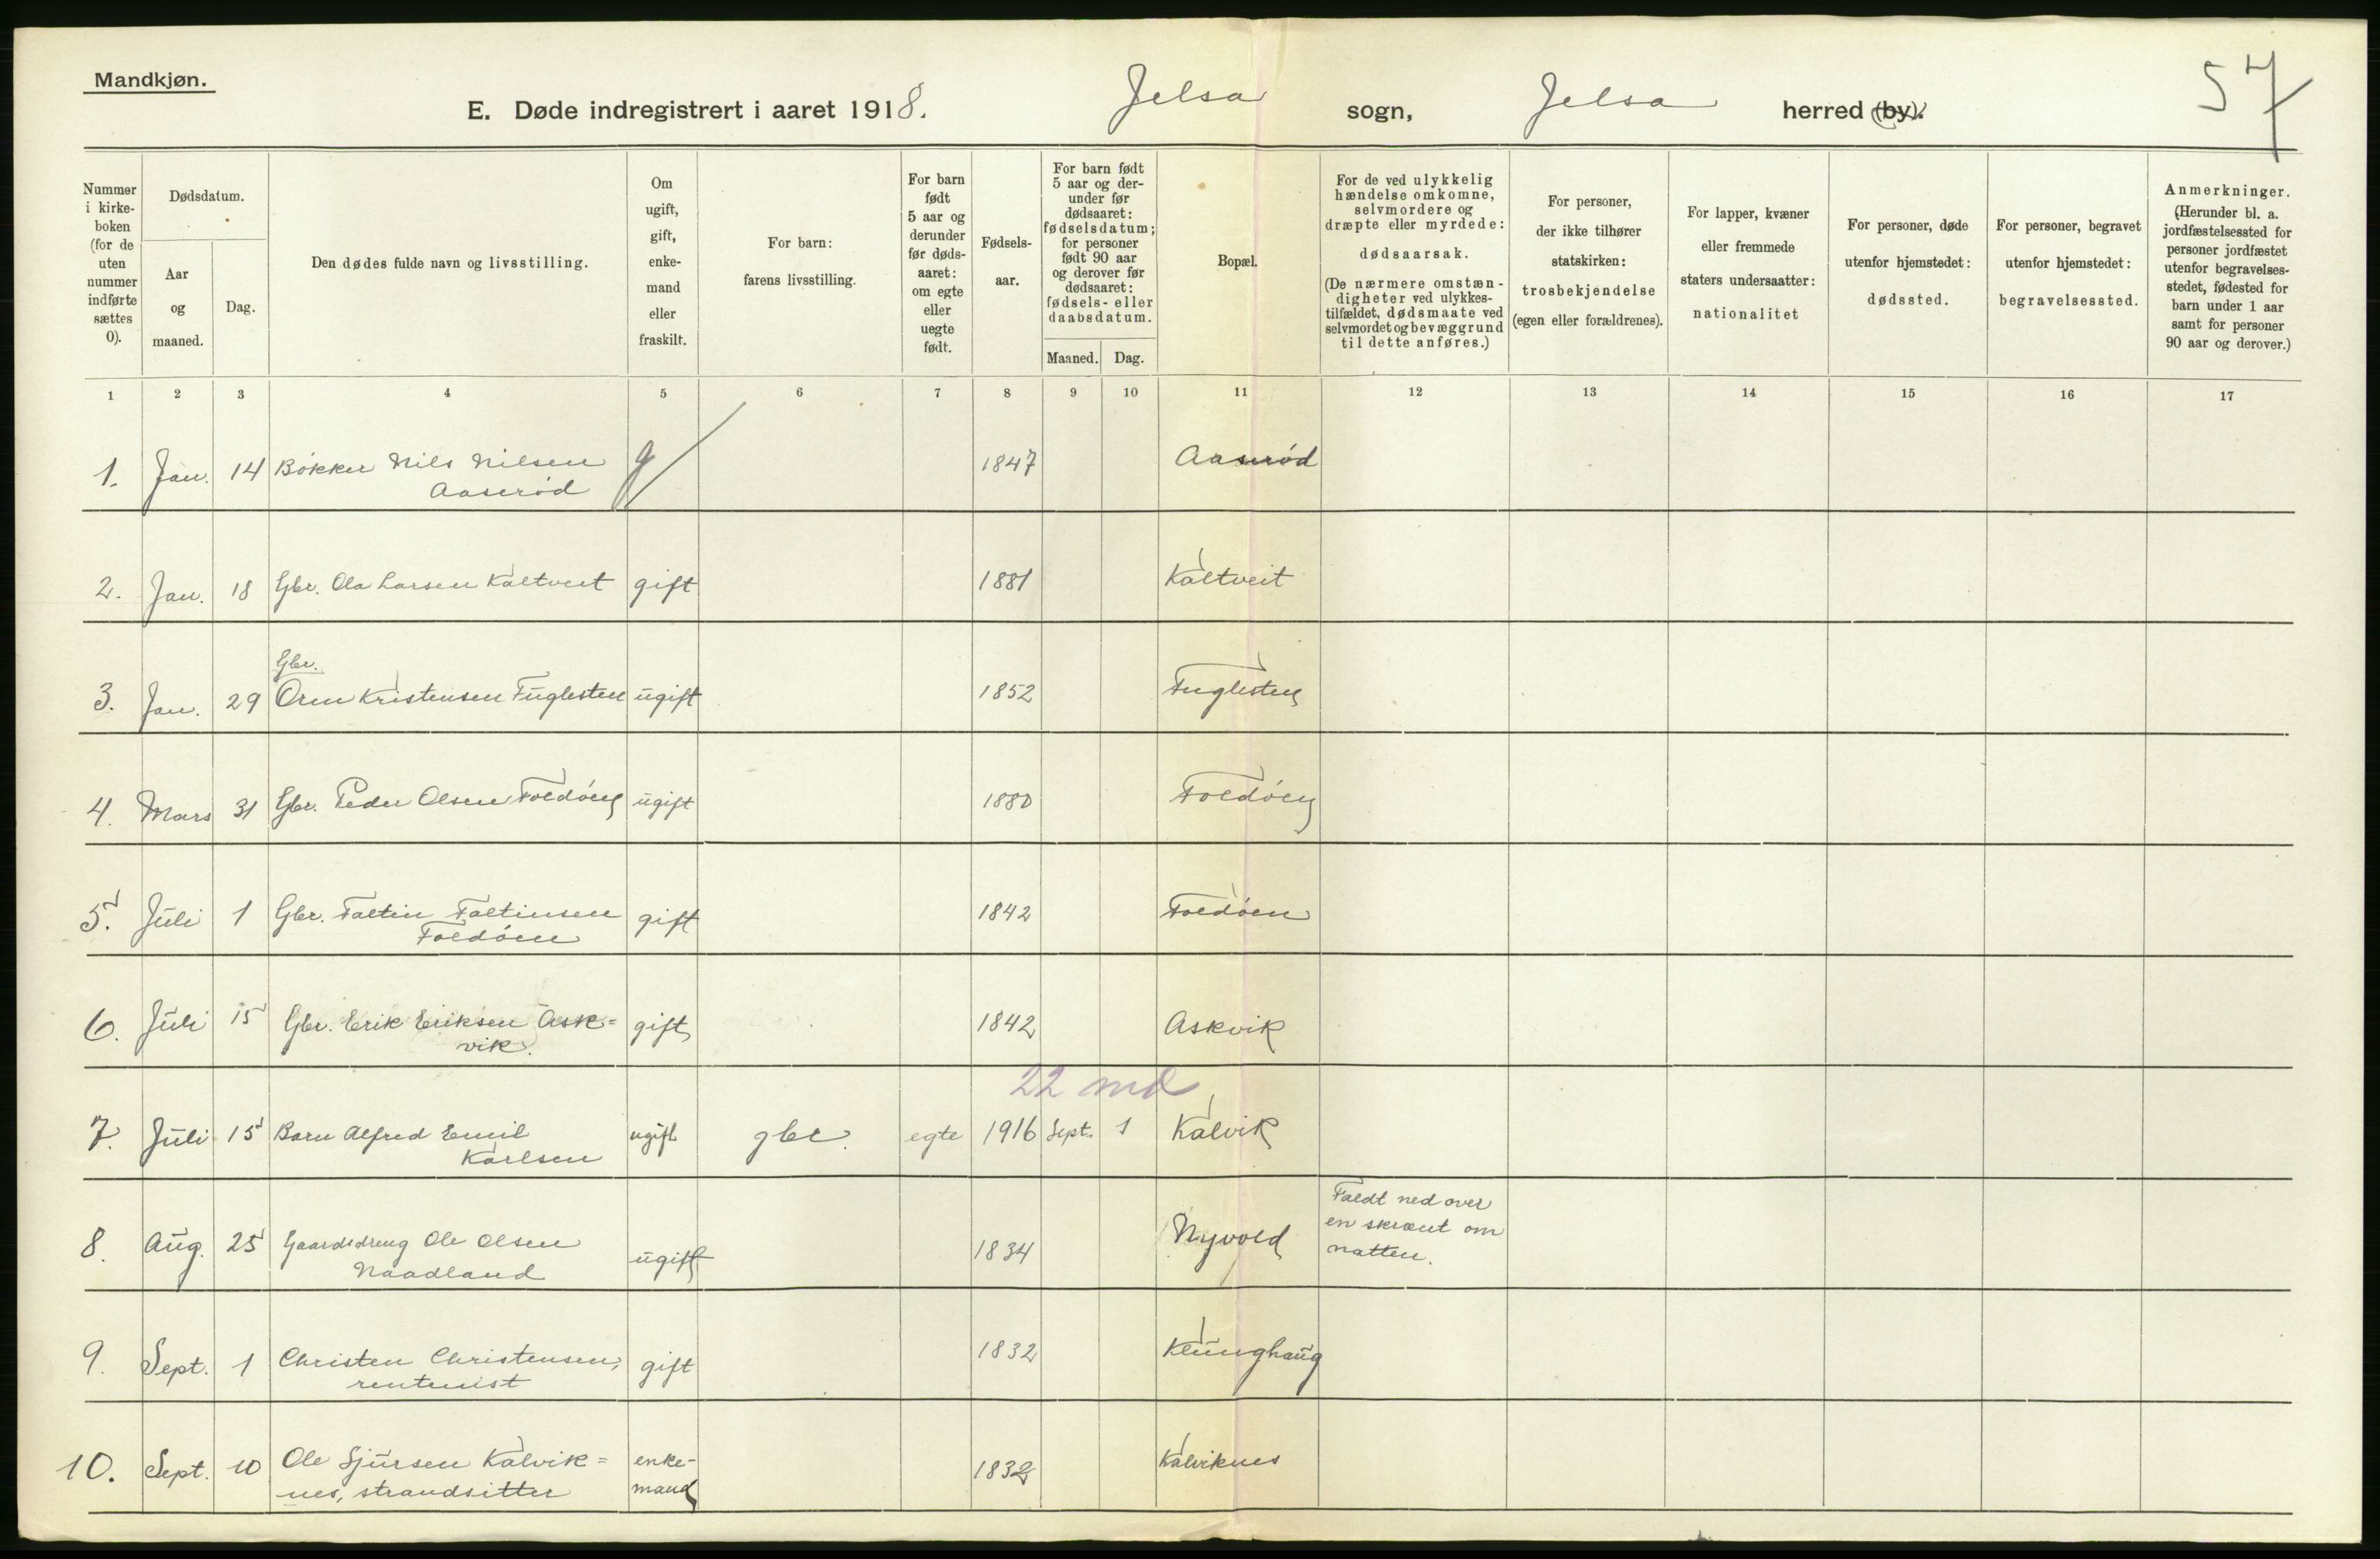 Mandkjøn.
E. Døde indregistrert i aaret 1918. Jelsa sogn, Jelsa herred (by).
57
Nummer i kirke-boken (for de uten nummer indførte sættes 0).
Dødsdatum.
Aar og maaned.
Dag.
Den dødes fulde navn og livsstilling.
Om ugift, gift, enke-mand eller fraskilt.
For barn: farens livsstilling.
For barn født 5 aar og derunder før døds-aaret: om egte eller uegte født.
Fødsels-aar.
For barn født 5 aar og der-under før dødsaaret: fødselsdatum; for personer født 90 aar og derover før dødsaaret: fødsels- eller daabsdatum.
Maaned. Dag.
Bopæl.
For de ved ulykkelig hændelse omkomne, selvmordere og dræpte eller myrdede: dødsaarsak. (De nærmere omstæn-digheter ved ulykkes-tilfældet, dødsmaate ved selvmordet og bevæggrund til dette anføres.)
For personer, der ikke tilhører statskirken: trosbekjendelse (egen eller forældrenes).
For lapper, kvæner eller fremmede staters undersaatter: nationalitet
For personer, døde utenfor hjemstedet: dødssted.
For personer, begravet utenfor hjemstedet: begravelsessted.
Anmerkninger. (Herunder bl. a. jordfæstelsessted for personer jordfæstet utenfor begravelses-stedet, fødested for barn under 1 aar samt for personer 90 aar og derover.)
1 2 3 4 5 6 7 8 9 10 11 12 13 14 15 16 17
1. Jan. 14 Bøkker Nils Nilsen g 1847 Aaserød
Aaserød
2. Jan. 18 Gbr. Ola Larsen Kaltveit gift 1881 Kaltveit
Gbr.
3. Jan. 29 Orm Kristensen Fuglesten ugift 1852 Fuglesten
4. Mars 31 Gbr. Peder Olsen Foldöen ugift 1880 Foldöen
5. Juli 1 Gbr. Faltin Faltinsen gift 1842 Foldöen
Foldöen
6. Juli 15 Gbr. Erik Eriksen Ask= gift 1842 Askvik
vik.
22 md
7. Juli 15 Barn Alfred Emil ugift gbr. egte 1916 Sept. 1 Kalvik
Karlsen
8. Aug. 25 Gaardsdreng Ole Olsen ugift 1834 Nyvold Faldt ned over
Naadland en skrænt om
natten.
9. Sept. 1 Christen Christensen, gift 1832 Klunghaug
rentenist
10. Sept. 10 Ole Sjursen Kalvik= enke- 1832 Kalviknes
nes, strandsitter mand